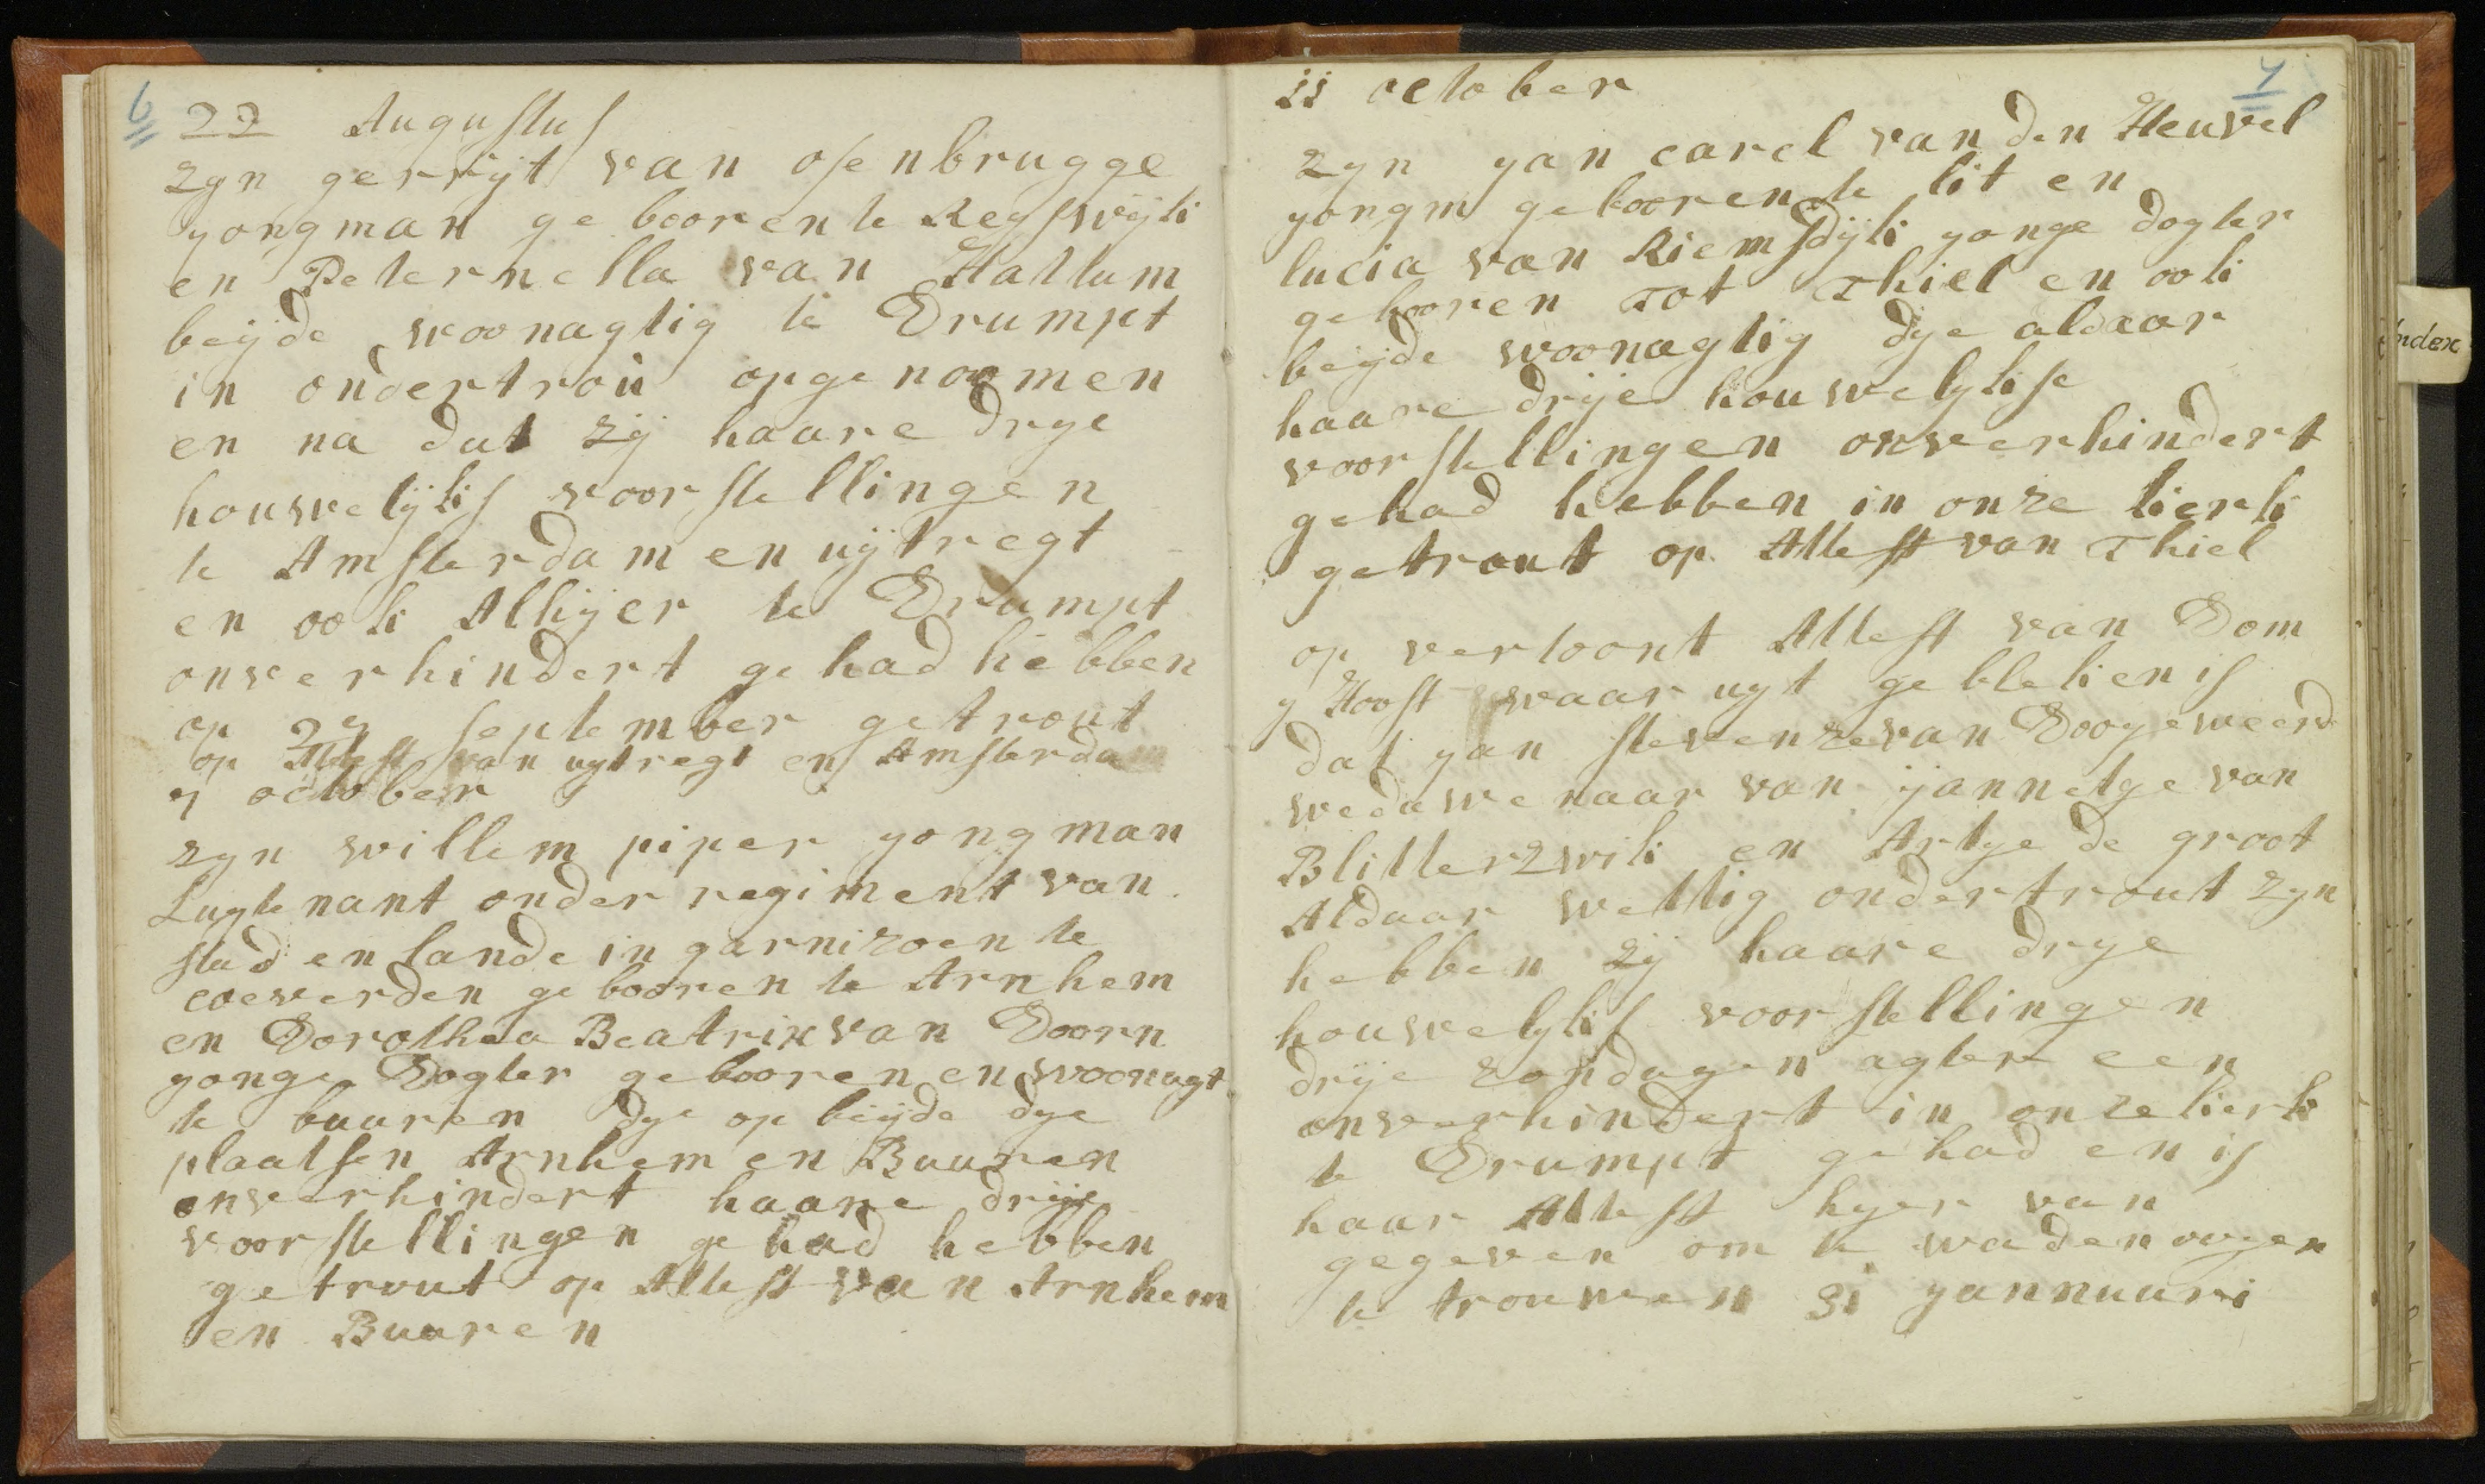 6
22 Augustus
zyn gerrijt van osenbrugge
yongman gebooren te Reyswijk
en Peternella van Hattum
beyde woonagtig te Drumpt
in ondertrou opgenoomen
en na dat zij haare drye
houwelijks voorstellingen
te Amsterdam en uijtregt
en ook Alhijer te Drumpt
onverhindert gehad hebben
op september getrout
op Attest van uytregt en Amsterdam
7 october
zyn willem piper yongman
Luytenant onder regiment van
stad en lande in garnizoen te
coeverden gebooren te Arnhem
en Dorothea Beatrix van Doorn
yonge Dogter gebooren en woonagt
te buuren dye op beyde dye
plaatsen Arnhem en Buuren
onverhindert haare drije
voorstellingen gehad hebben
getrout op Attest van Arnhem
en Buuren
7
11 october
zyn yan carel van den Heuvel
yongm gebooren te lit en
lucia van Riemsdijk yonge dogter
gebooren tot Thiel en ook
beyde woonagtig dye aldaar
haare drije houwelykse
voorstellingen onverhindert
gehad hebben in onze kierk
getrout op Attest van Thiel
op vertoont Attest van Dom
y Hooft waar uyt gebleken is
dat yan stevenze van Dooyeweerd
wedawenaar van yannetge van
Blitterzwik en Artye de groot
Aldaar wettig ondertrout zyn
hebben zij haare drye
houwelyks voorstellingen
drije zondagen agter een
onverhindert in onze kierk
te Drumpt gehad en is
haar Attest hyer van
gegeven om te wadenoyen
te trouwen 31 yannuari
Index